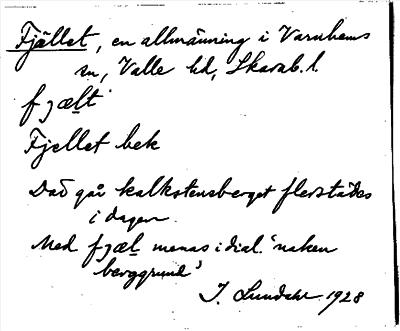 Fjället, en allmänning i Varnhems
sn, Valle hd, Skarab. l.
fjælt
Fjellet bek
Där går kalkstensberget flerstädes
i dagen.
Med fjæl menas i dial. 'naken
berggrund'
I. Lundahl 1928